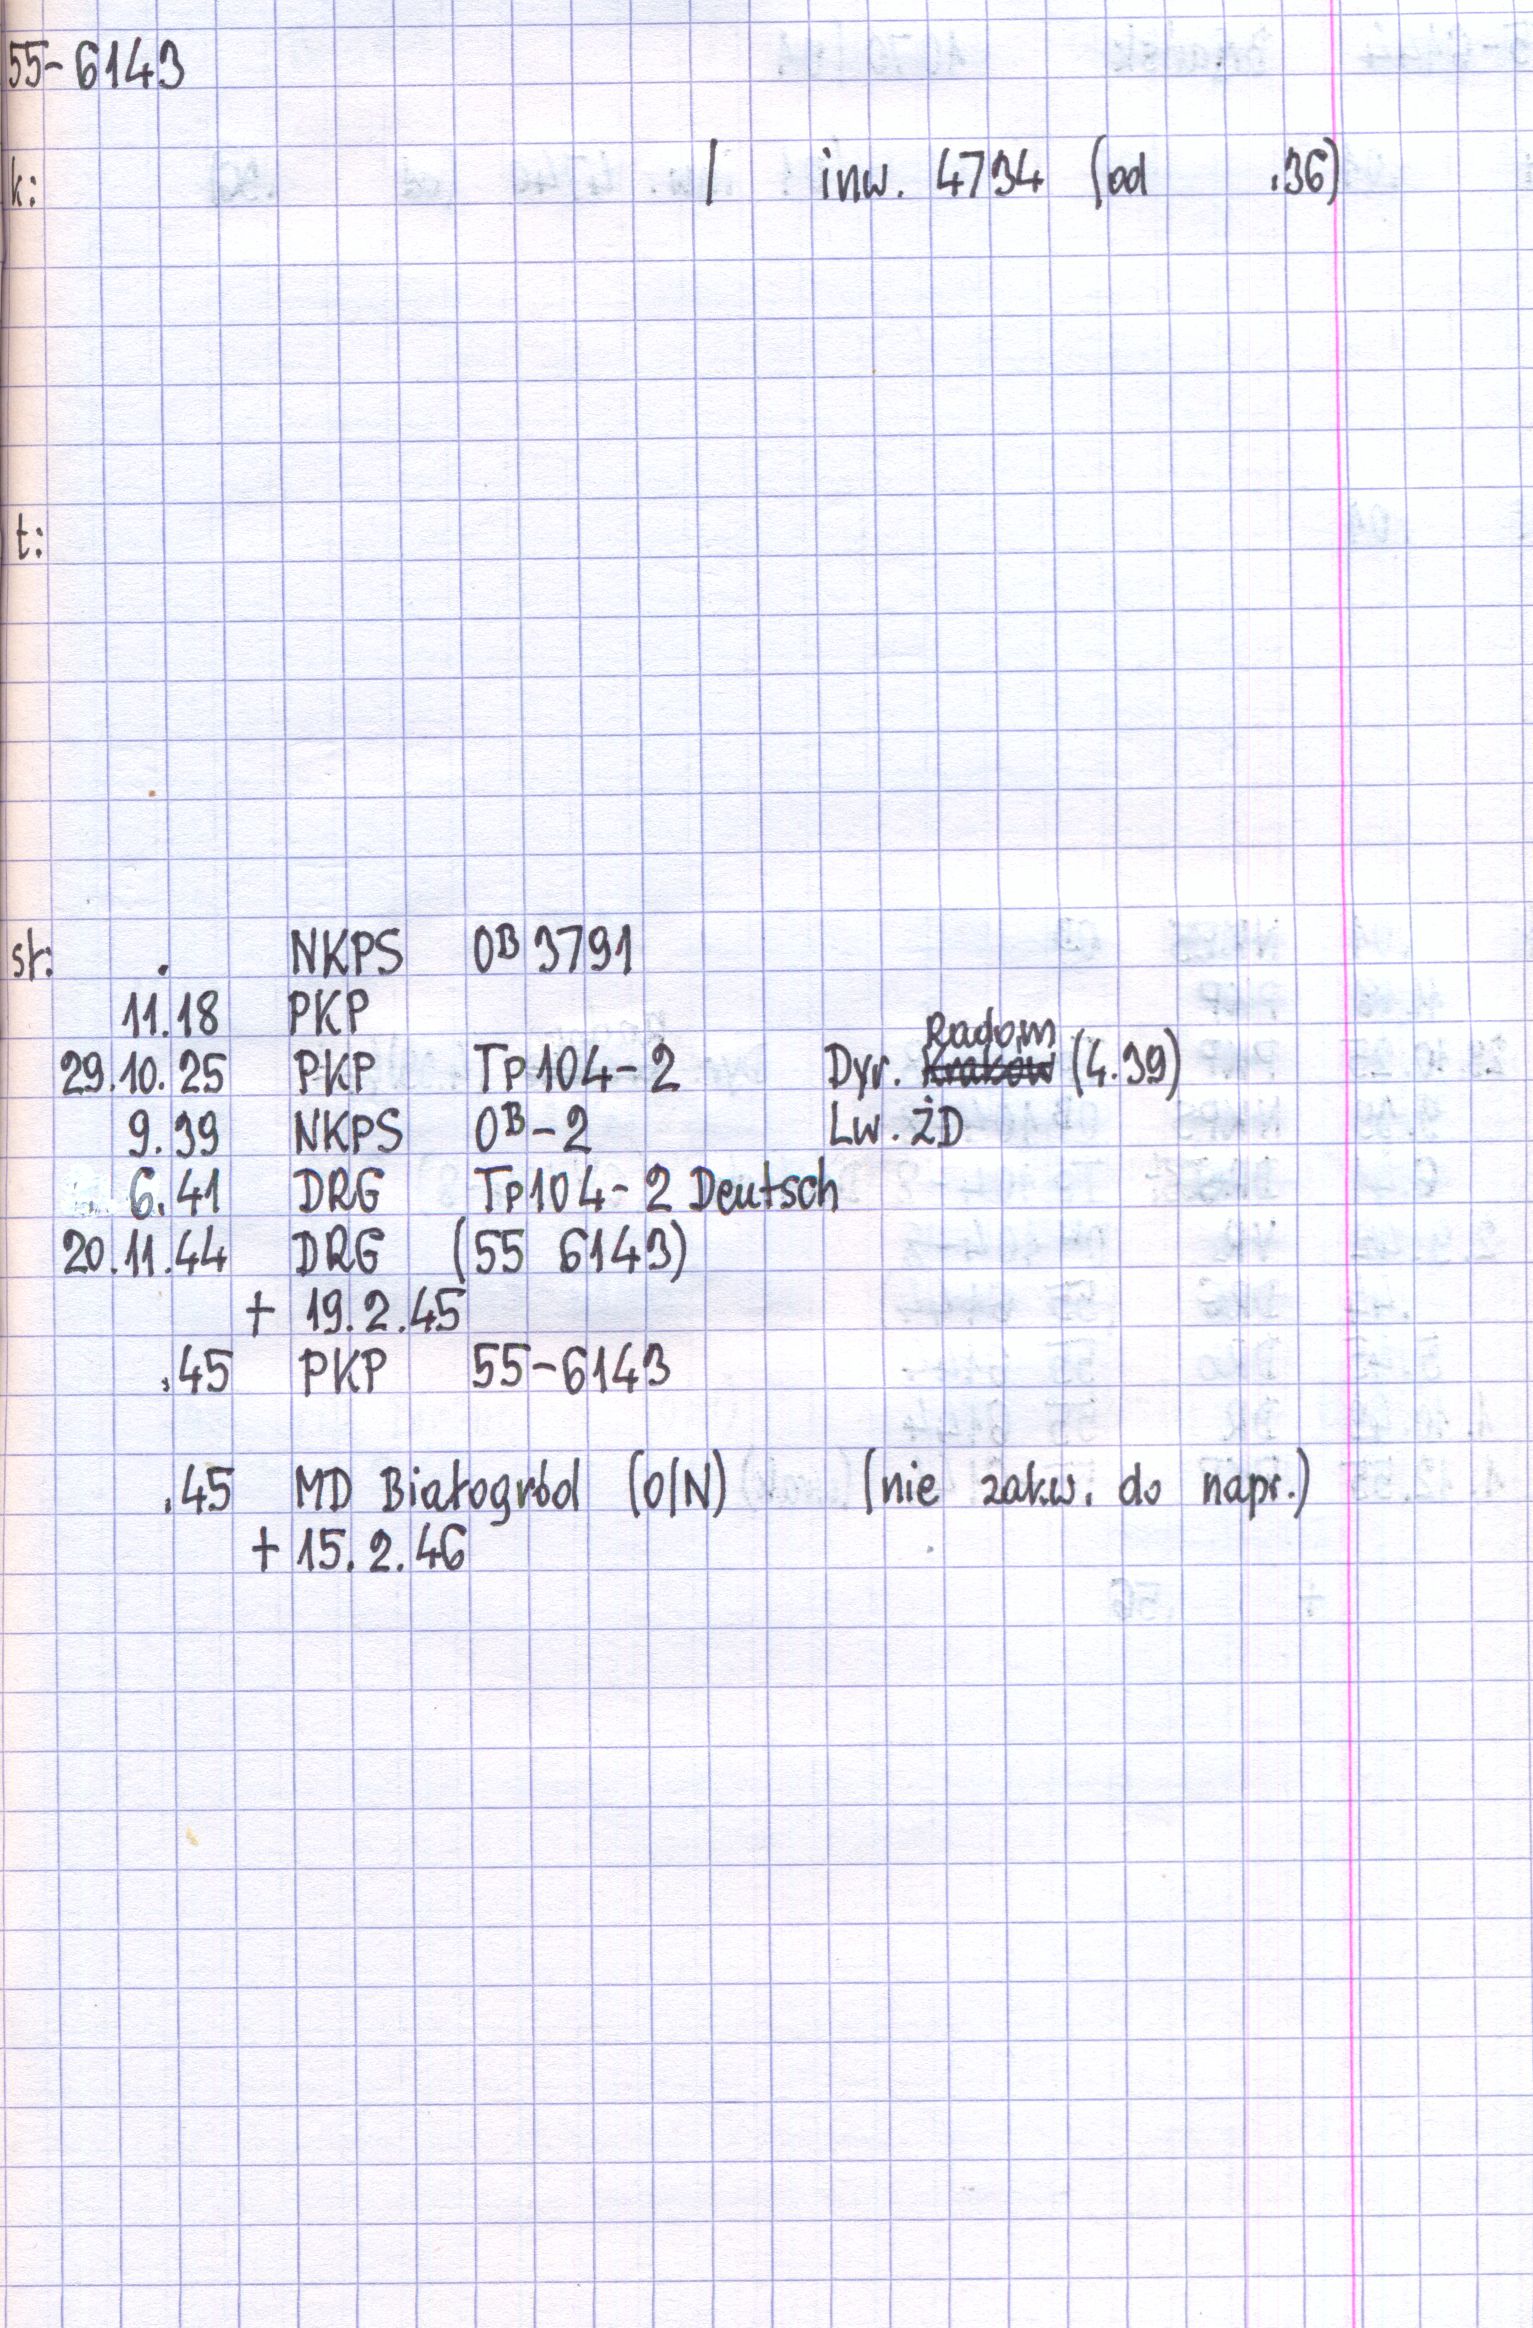 55-6143
k: / inw. 4734 (od .36)
t:
st: . NKPS OВ 3791
11.18 PKP
Radom
29.10.25 PKP Tp104-2 Dyr. Kraków (4.39)
9.39 NKPS OВ-2 Lw. ŻD
6.41 DRG Tp104-2 Deutsch
20.11.44 DRG (55 6143)
+ 19.2.45
.45 PKP 55-6143
.45 MD Białogród (O/N) (nie zakw. do napr.)
+ 15.2.46